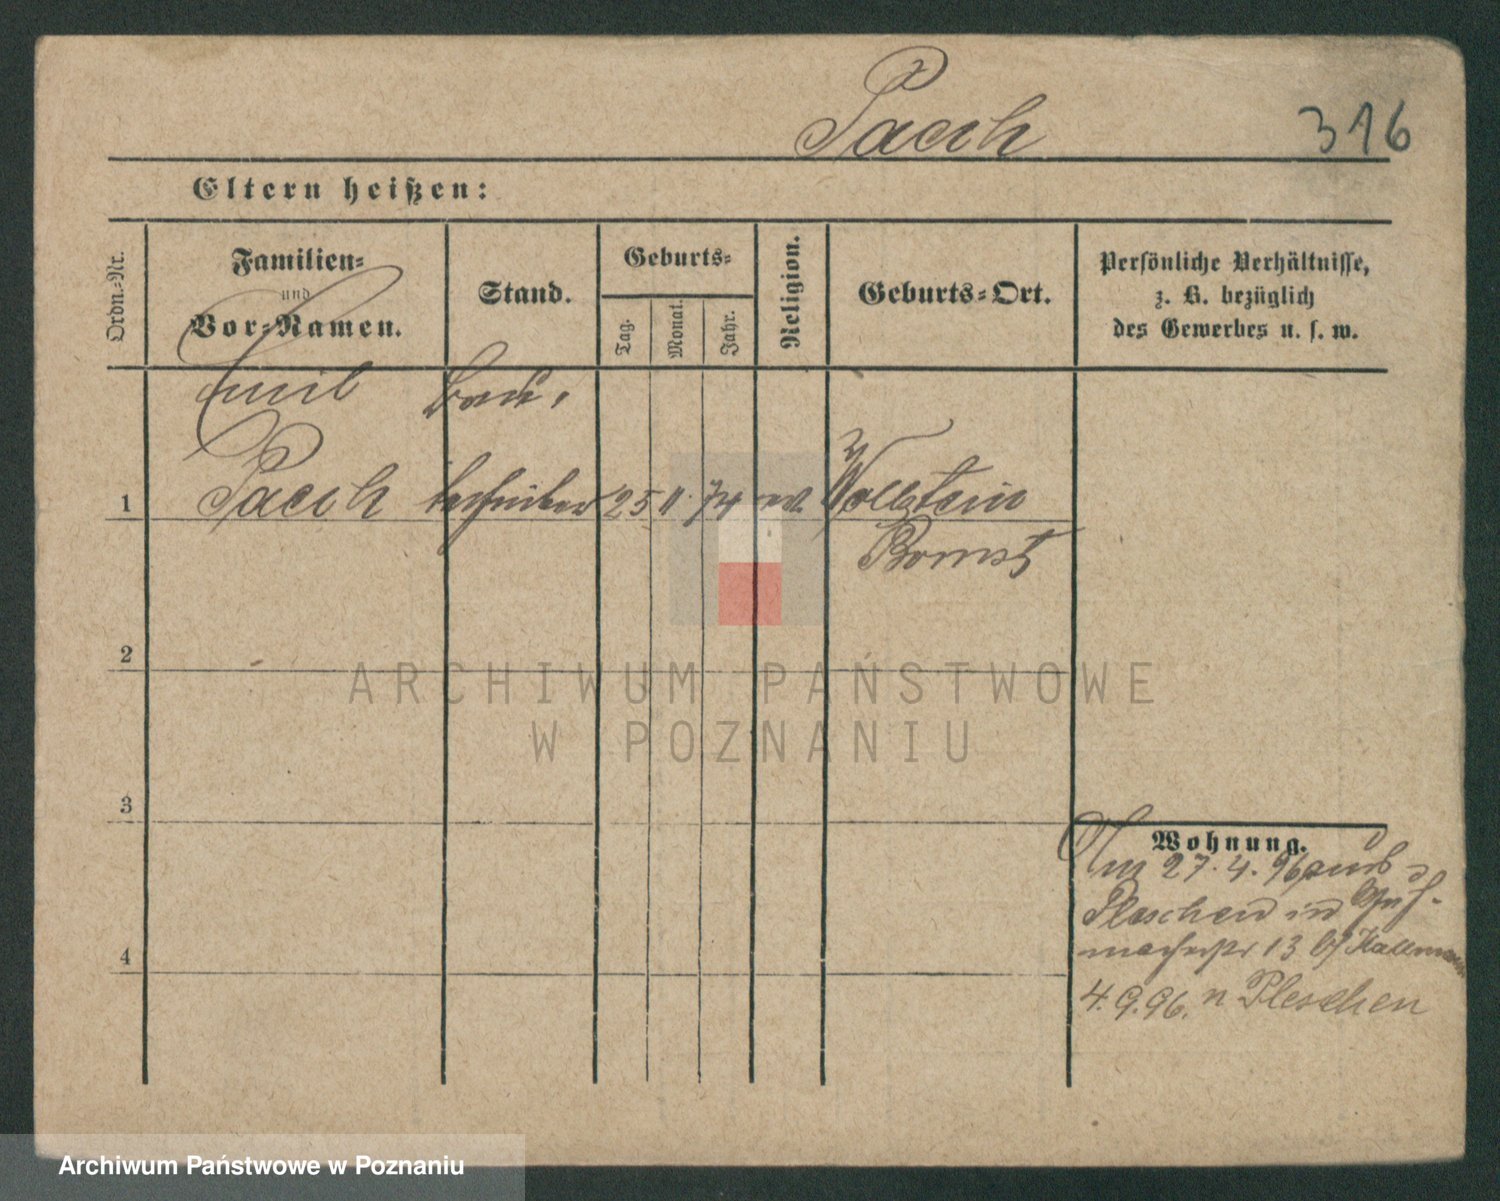 Pacih
316
Eltern heißen:
Ordn.-Nr.
Familien-
und
Vor-Namen.
Stand.
Geburts-
Tag.
Monat.
Jahr.
Religion.
Geburts-Ort.
Persönliche Verhältnisse,
z. B. bezüglich
des Gewerbes u. s. w.
Emil
Bau,
1
techniker
25 11. 74
Wollstein
Bomst
2
3
4
Wohnung.
Am 27. 4. 96
Pleschen in
13 Kallmann
4.9.96. n Pleschen
ARCHIWUM PAŃSTWOWE
W POZNANIU
Archiwum Państwowe w Poznaniu